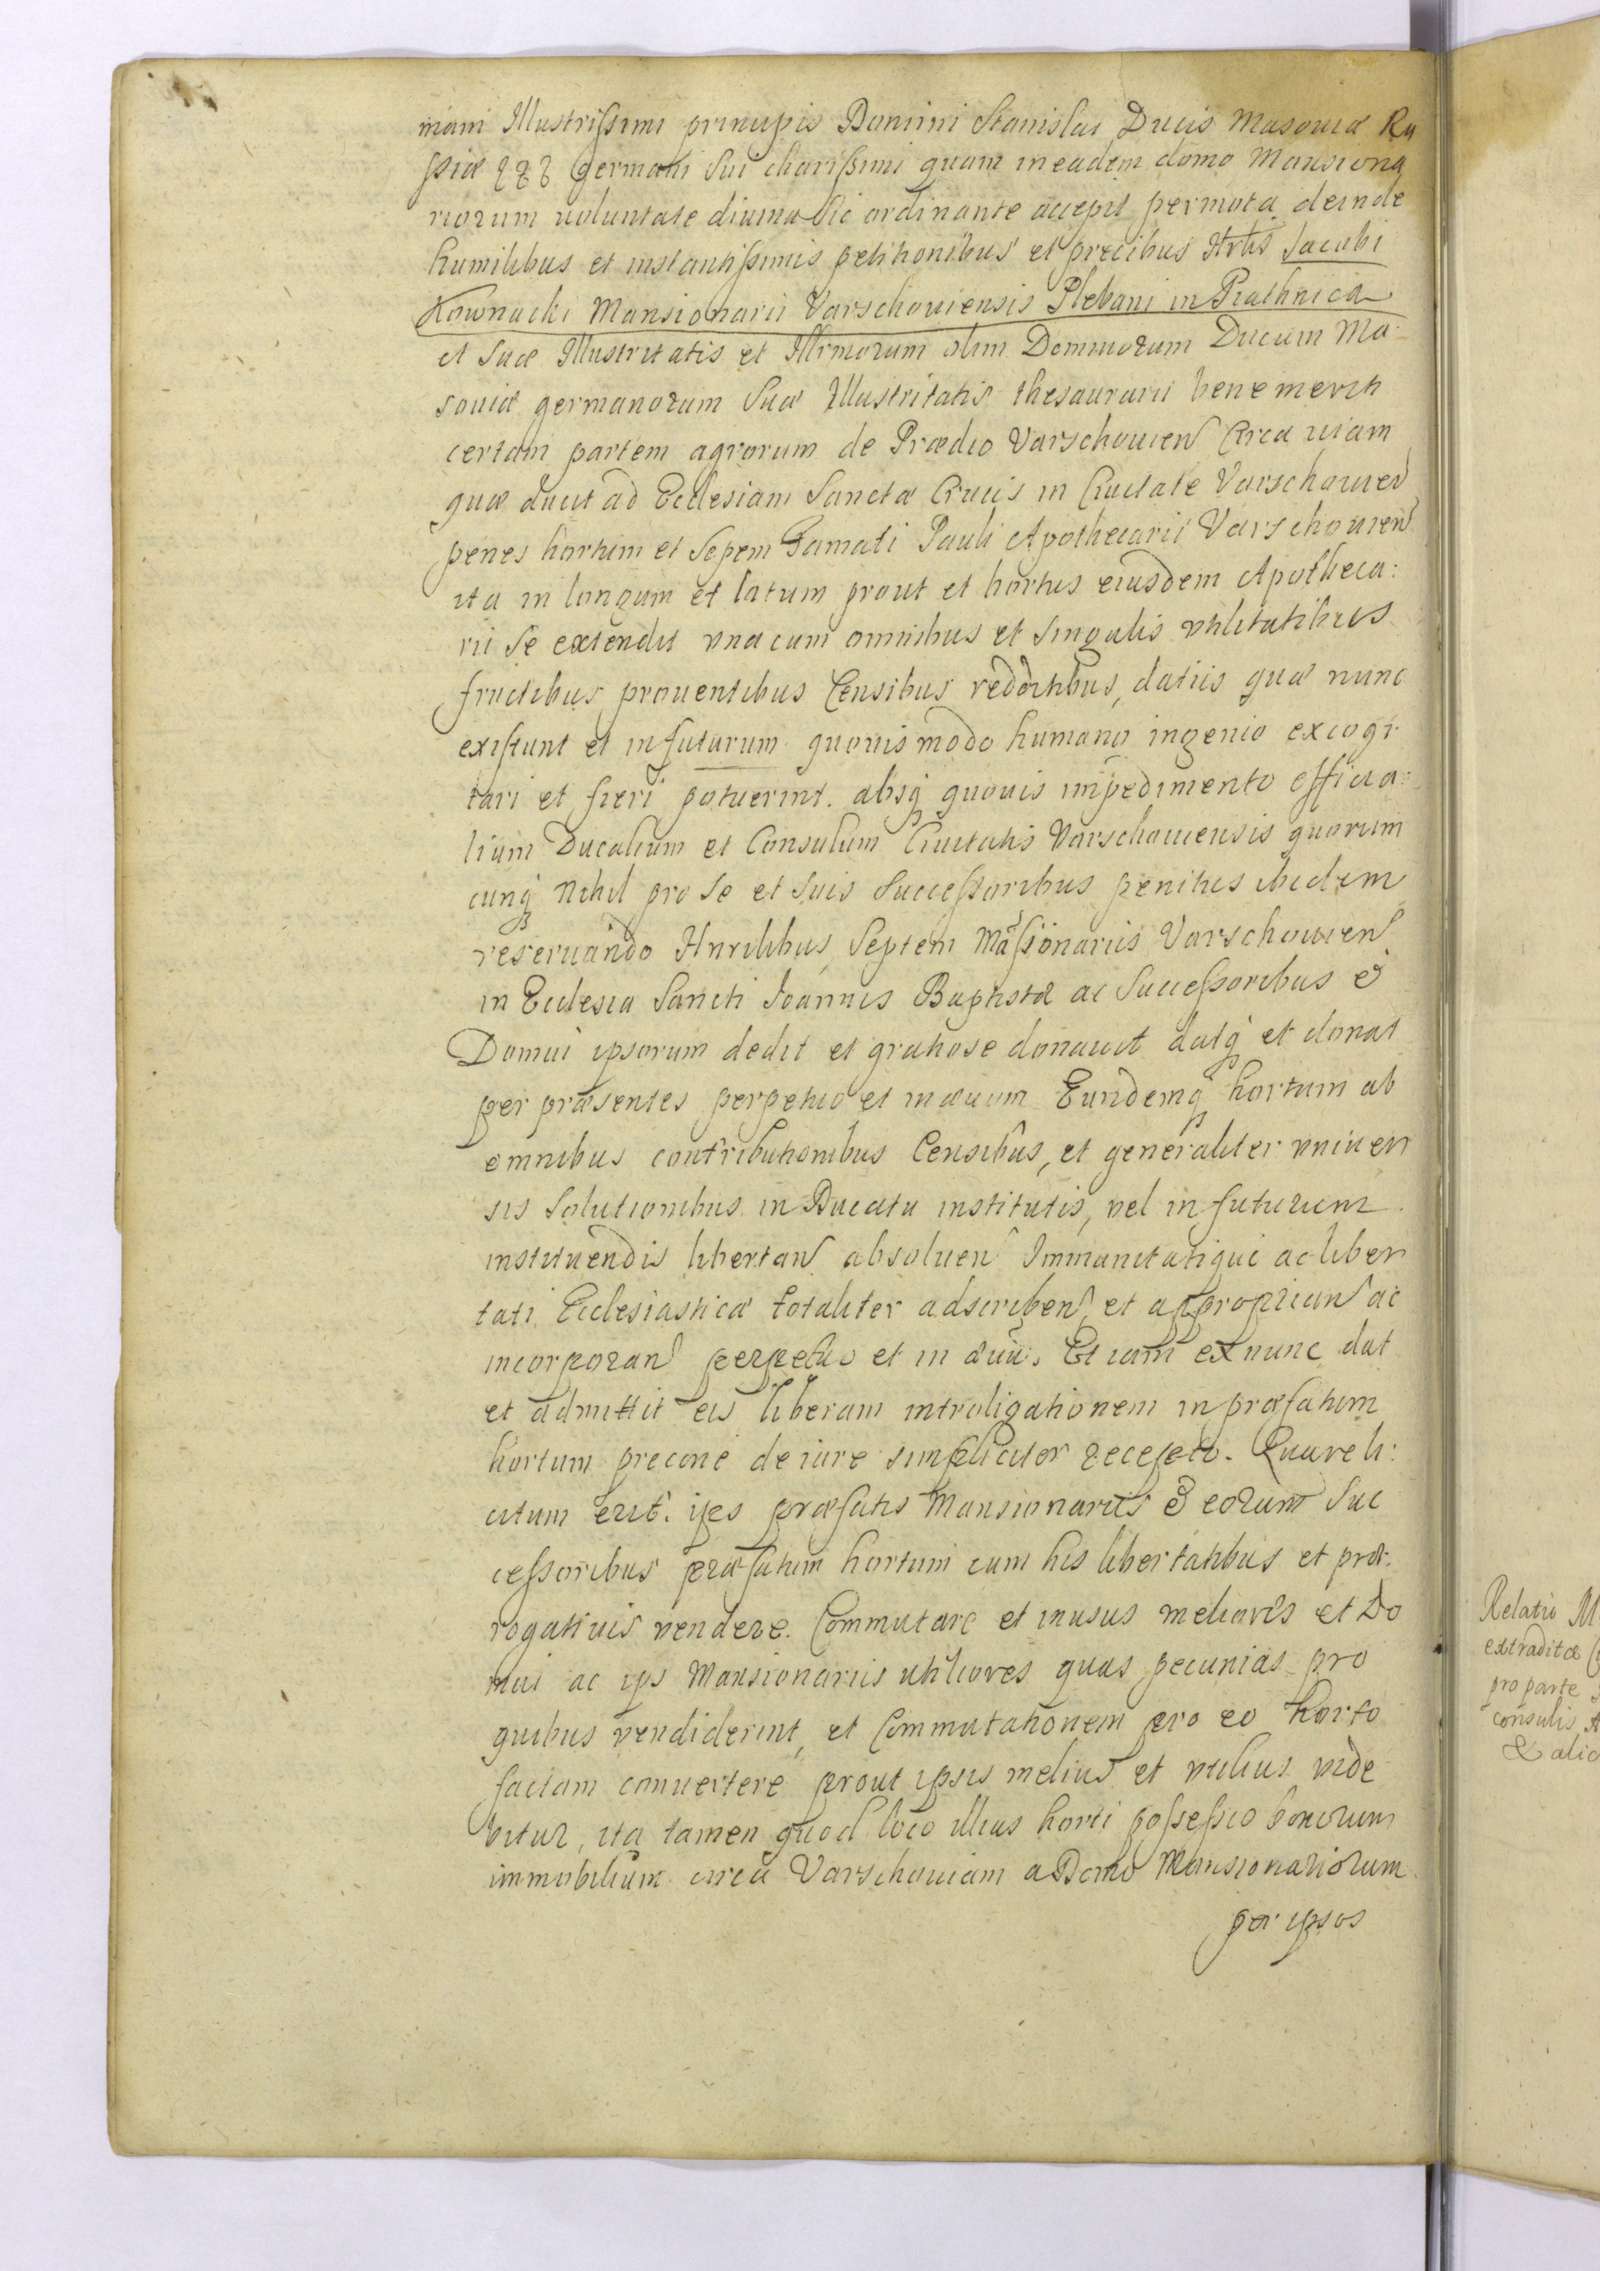 mam Illustrissimi principis Domini Stanislai Ducis Masoviæ Ru
ssiæ &&& germani Sui charissimi quam in eadem domo Mansiona
riorum voluntate divina Sic ordinante accepit permota deinde
humilibus et instantissimis petitionibus et precibus Jacobi
Kownacki Mansionarii Varschoviensis Plebani in Prathnica
et Suæ Illustritatis et Illrmorum olim Dominorum Ducum Ma:
soviæ germanorum Suæ Illustritatis thesaurarii benemeriti
certam partem agrorum de Prædio Varschovien Circa viam
quæ ducit ad Ecclesiam Sanctæ Crucis in Civitate Varschovien
penes hortum et Sepem Famati Pauli Apothecarii Varschovien
ita in longum et latum prout et hortus eiusdem Apotheca:
rii Se extendit vna cum omnibus et Singulis vtilitatibus
fructibus proventibus Censibus redditibus, datiis quæ nunc
existunt et in futurum quovis modo humano ingenio excogi
tari et fieri potuerint. absq quovis impedimento officia:
lium Ducalium et Consulum Civitatis Varschoviensis quorum
cunq Nihil pro Se et Suis Successoribus penitus ibidem
reservando Hnrilibus Septem Mansionariis Varschovien
in Ecclesia Sancti Joannis Baptistæ ac Successoribus &
Domui ipsorum dedit et gratiose donavit datq et donat
per præsentes perpetuo et in ævum Eundemq hortum ab
omnibus contributionibus Censibus, et generaliter vniver
sis Solutionibus in Ducatu institutis, vel in futurum
instituendis libertan absolven Immunitatique ac liber
tati Ecclesiasticæ totaliter adscriben et approprian ac
incorporan perpetuo et in ævu. Et iam ex nunc dat
et admittit eis liberam introligationem in præfatum
hortum precone de iure simpliciter recepto. Quare li:
citum erit. ips præfatis Mansionariis & eorum Suc
cessoribus præfatum hortum cum his libertatibus et præ:
rogativis vendere. Commutare et in usus meliores et Do
mui ac ips Mansionariis vtiliores quas pecunias pro
quibus vendiderint, et Commutationem pro eo horto
factam convertere prout ipsis melius et vtilius vide
bitur, ita tamen quod loco illius horti possessio bonorum
immobilium circa Varschoviam a Domo Mansionariorum
per ipsos
Relatio
extraditæ
pro parte
consulis
& alio